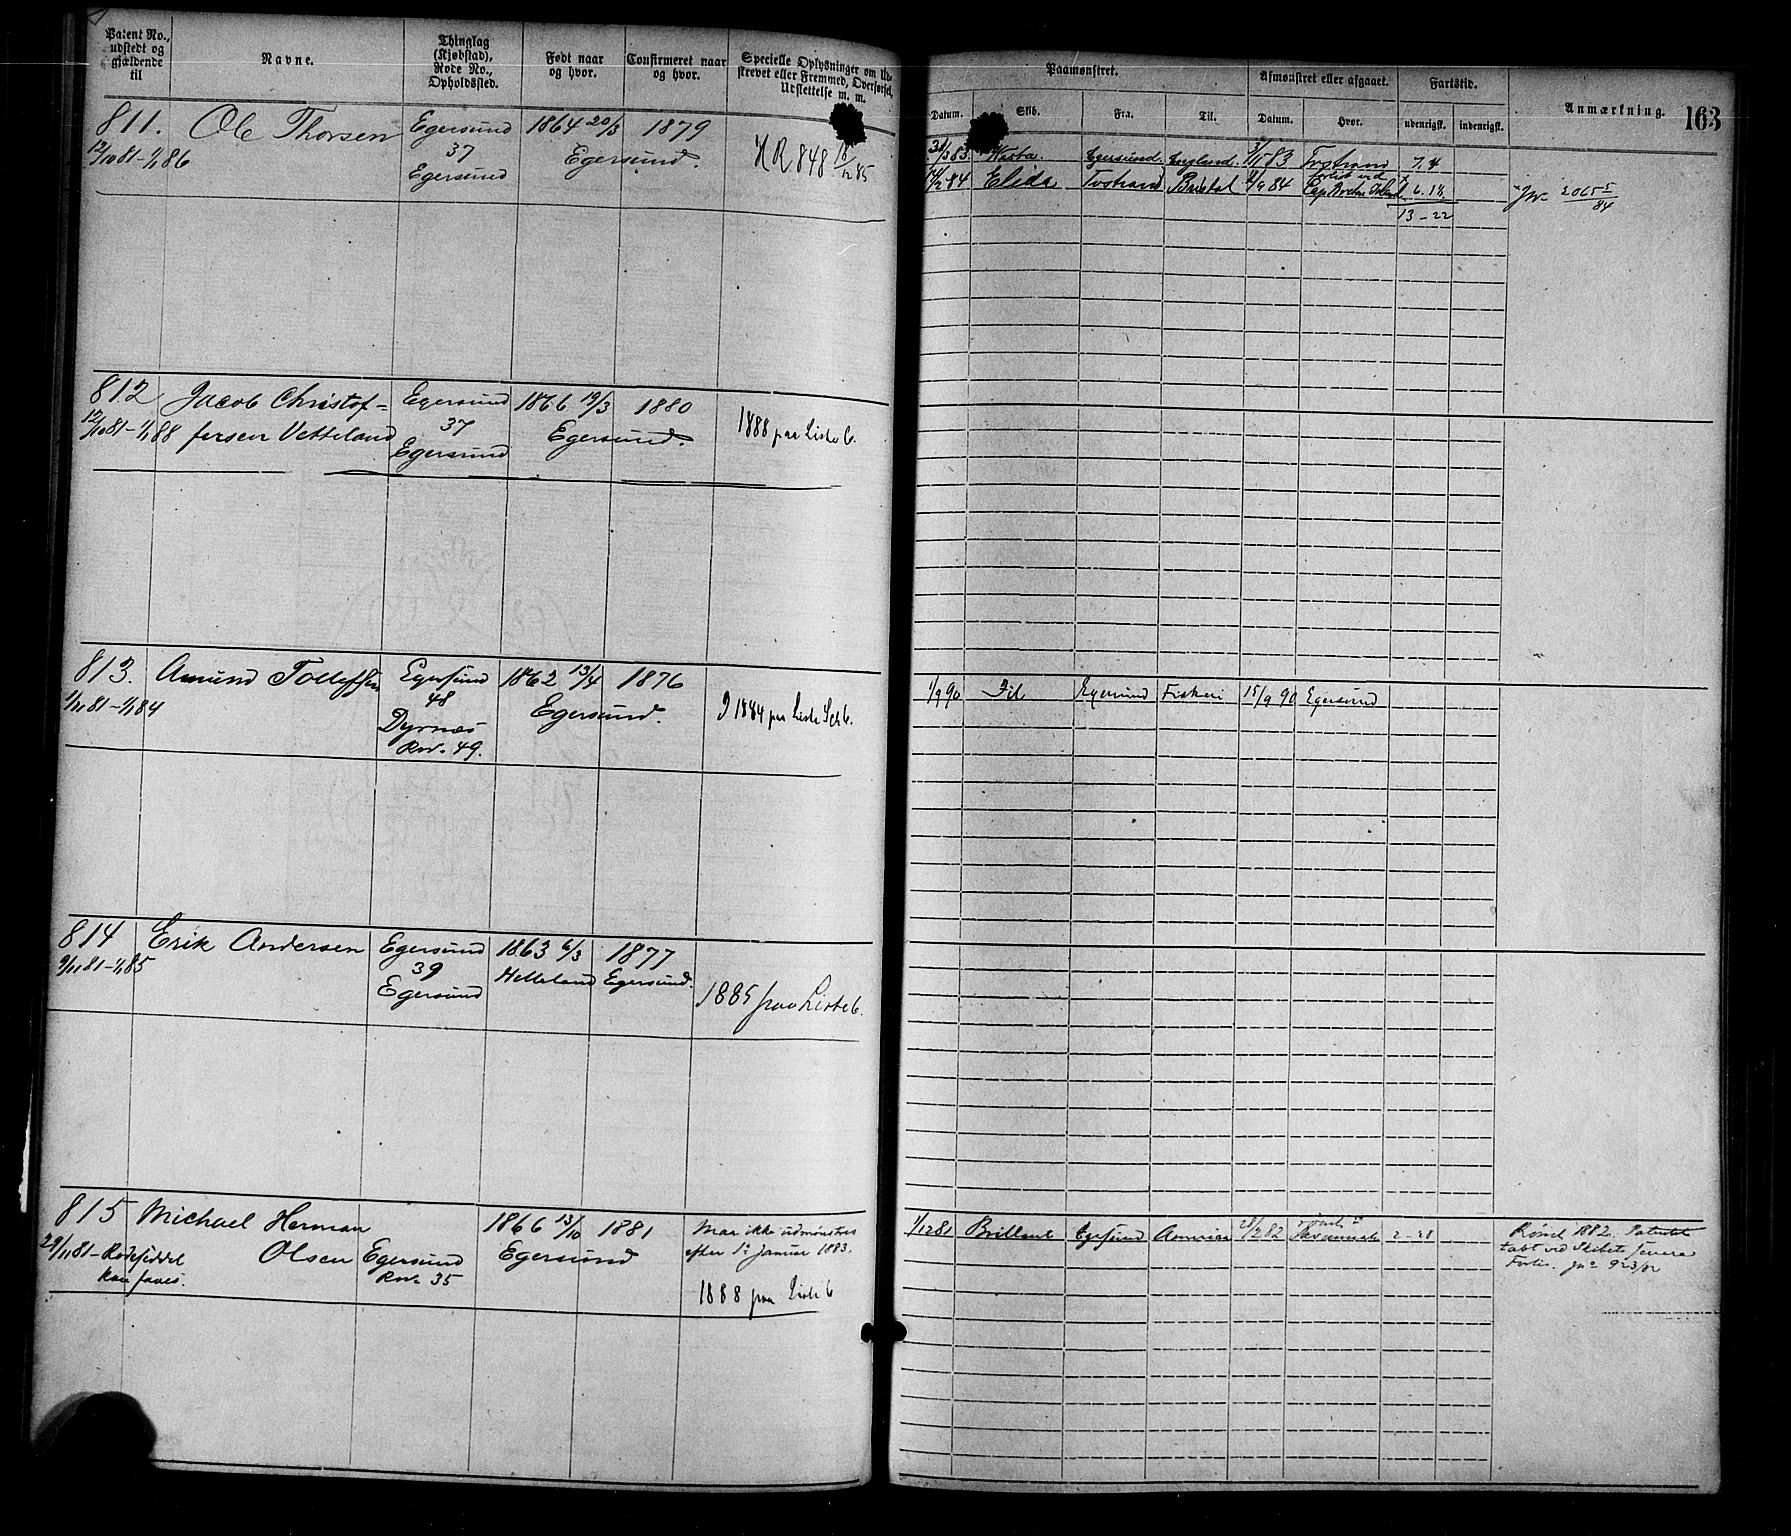 Patent No., udstedt og gjældende til
Navne.
Thinglag (Kjøbstad), Rode No., Opholdssted.
Født naar og hvor.
Confirmeret naar og hvor.
Specielle Oplysninger om Ud-
skrevet eller Fremmed, Overførsel,
Udslettelse m. m.
Paamønstret.
Afmønstret eller afgaaet.
Fartstid.
Anmærkning.
163
Datum.
Skib.
Fra.
Til.
Datum.
Hvor.
udenrigsk.
indenrigsk.
811. Ole Thorsen Egersund 1864 20/3 1879
12/10 81 - 1/1 86 37 Egersund. HR 848 18/12 85
Egersund
83 Egersund. England. 83 Tvstrand 7.4
84 Elida Tvstrand Bristol 9 84 6.18
13 - 22
Jn 2065 5/84
812 Jacob Christof= Egersund 1866 19/3 1880
12/10 81 - 1/1 88 fersen Vetteland 37 Egersund. 1888 paa Liste 6.
Egersund
813. Amund Tollefsen Egersund 1862 13/4 1876
1/11 81 - 1/1 84 48 Egersund. 1884 paa Liste 6.
Dyrnæs
Rno. 49.
1/9 90 Egersund Fiskeri 15/9 90 Egersund
814 Erik Andersen Egersund 1863 6/3 1877
9/11 81 - 1/1 85 39 Helleland Egersund.
Egersund 1885 paa Liste 6.
815 Michael Herman 1866 13/10 1881 Maa ikke udmønstres
29/11 81 - Rodeseddel Olsen Egersund Egersund efter 1ste Januar 1883.
kan faaes. Rno 35
1888 paa Liste 6
1/12 81 Brillant Egersund 28/2 82 2 - 28
Rømt 1882. Patentet
tabt ved Skibets senere
Forlis. Jno 923/82